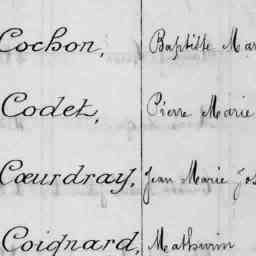 Cochon, Baptiste Mar
Codet, Pierre Marie
Cœurdray, Jean Marie Jos
Coignard, Mathurin